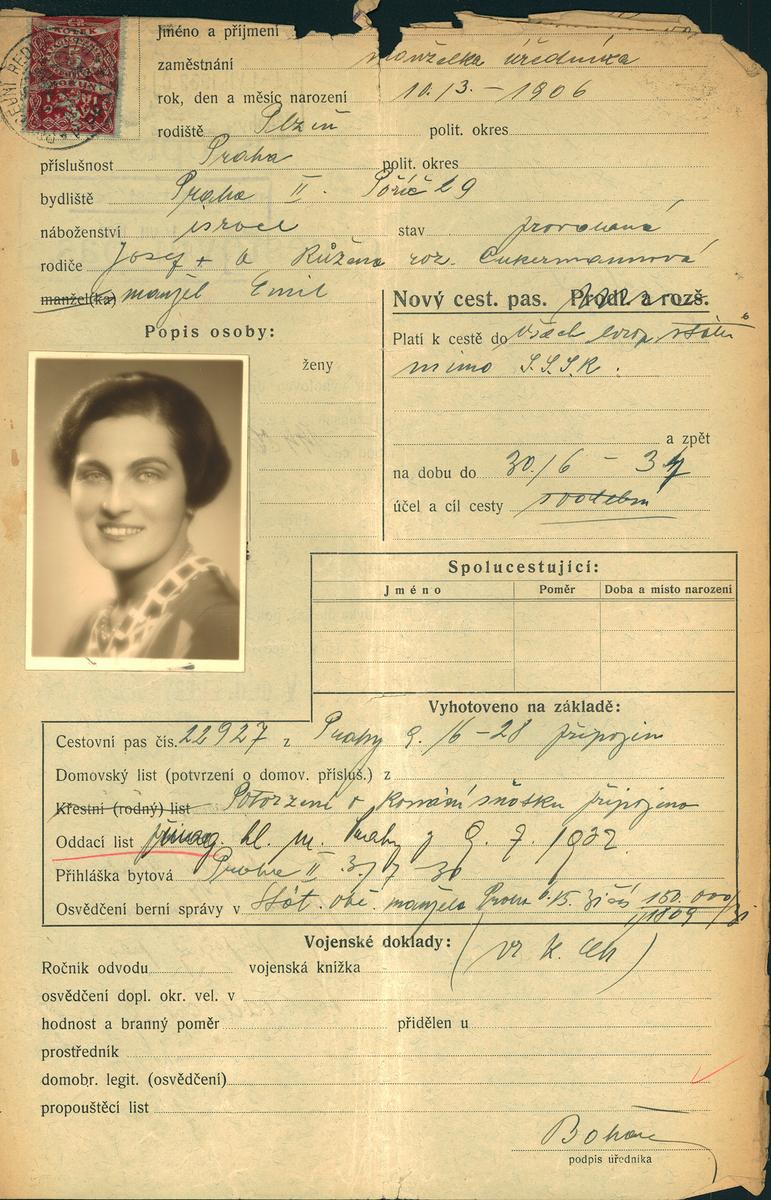 Jméno a příjmení
zaměstnání manželka úředníka
rok, den a měsíc narození 10./3. – 1906
rodiště Plzeň polit. okres
příslušnost Praha polit. okres
bydliště Praha II. Poříč 19
náboženství israel stav provdaná
rodiče Josef + a Růžena roz. Cukermannová
manžel(ka) manžel Emil
Nový cest. pas. Prodl. a rozš.
Popis osoby:
Platí k cestě do všech evrop. států
mimo S.S.S.R.
ženy
a zpět
na dobu do 30./6 – 37
účel a cíl cesty svatební
Spolucestující:
Jméno Poměr Doba a místo narození
Vyhotoveno na základě:
Cestovní pas čís. 22927 z Prahy 9./6 – 28 připojen
Domovský list (potvrzení o domov. přísluš.) z
Křestní (rodný) list Potvrzení o konání sňatku připojeno
Oddací list hl. m. Prahy z 9. 7. 1932.
Přihláška bytová Praha II 3/7 – 30
Osvědčení berní správy v Stát. obč. manžela 150.000/
Vojenské doklady:
Ročník odvodu vojenská knížka
osvědčení dopl. okr. vel. v
hodnost a branný poměr přidělen u
prostředník
domobr. legit. (osvědčení)
propouštěcí list
podpis úředníka